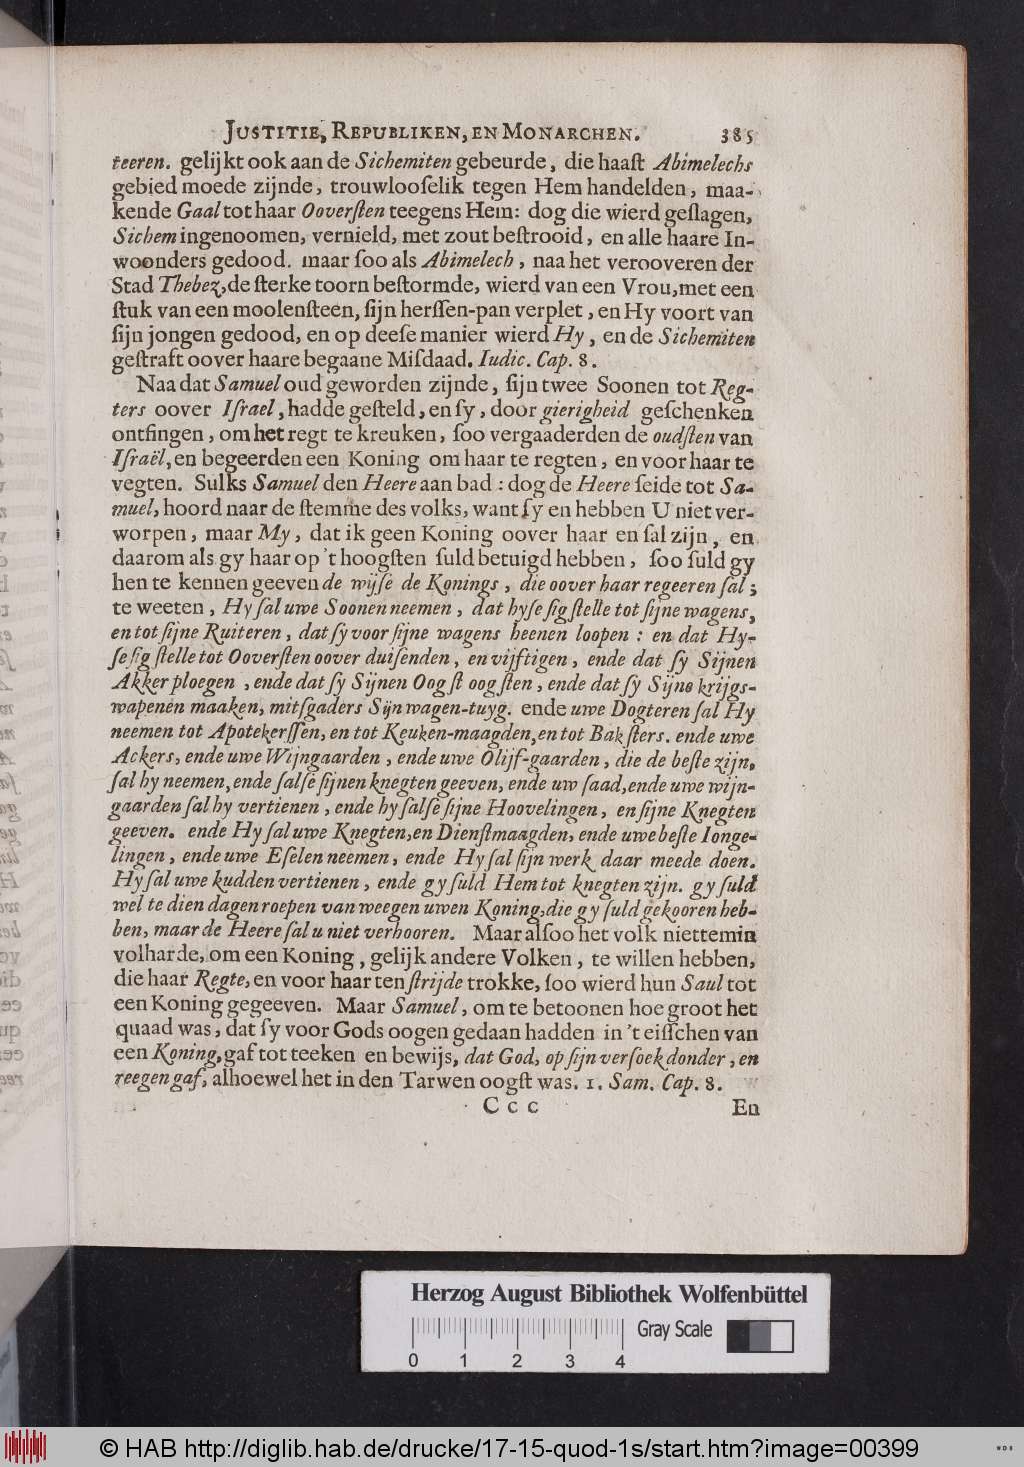 JUSTITIE, REPUBLIKEN, EN MONARCHEN. 385
teeren. gelijkt ook aan de Sichemiten gebeurde, die haaſt Abimelechs
gebied moede zijnde, trouwlooſelik tegen Hem handelden, maa-
kende Gaal tot haar Ooverſten teegens Hem: dog die wierd geſlagen,
Sichem ingenoomen, vernield, met zout beſtrooid, en alle haare In-
woonders gedood. maar ſoo als Abimelech, naa het verooveren der
Stad Thebez, de ſterke toorn beſtormde, wierd van een Vrou, met een
ſtuk van een moolenſteen, ſijn herſſen-pan verplet, en Hy voort van
ſijn jongen gedood, en op deeſe manier wierd Hy, en de Sichemiten
geſtraft oover haare begaane Miſdaad. Iudic. Cap. 8.
Naa dat Samuel oud geworden zijnde, ſijn twee Soonen tot Reg-
ters oover Iſrael, hadde geſteld, en ſy, door gierigheid geſchenken
ontfingen, om het regt te kreuken, ſoo vergaaderden de oudſten van
Iſraël, en begeerden een Koning om haar te regten, en voor haar te
vegten. Sulks Samuel den Heere aan bad: dog de Heere ſeide tot Sa-
muel, hoord naar de ſtemme des volks, want ſy en hebben U niet ver-
worpen, maar My, dat ik geen Koning oover haar en ſal zijn, en
daarom als gy haar op 't hoogſten ſuld betuigd hebben, ſoo ſuld gy
hen te kennen geeven de wijſe de Konings, die oover haar regeeren ſal;
te weeten, Hy ſal uwe Soonen neemen, dat hyſe ſig ſtelle tot ſijne wagens,
en tot ſijne Ruiteren, dat ſy voor ſijne wagens heenen loopen: en dat Hy-
ſe ſig ſtelle tot Ooverſten oover duiſenden, en vijftigen, ende dat ſy Sijnen
Akker ploegen, ende dat ſy Sijnen Oogſt oogſten, ende dat ſy Sijne krijgs-
wapenen maaken, mitſgaders Sijn wagen-tuyg. ende uwe Dogteren ſal Hy
neemen tot Apotekerſſen, en tot Keuken-maagden, en tot Bakſters. ende uwe
Ackers, ende uwe Wijngaarden, ende uwe Olijf-gaarden, die de beſte zijn,
ſal hy neemen, ende ſalſe ſijnen knegten geeven, ende uw ſaad, ende uwe wijn-
gaarden ſal hy vertienen, ende hy ſalſe ſijne Hoovelingen, en ſijne Knegten
geeven. ende Hy ſal uwe Knegten, en Dienſtmaagden, ende uwe beſte Ionge-
lingen, ende uwe Eſelen neemen, ende Hy ſal ſijn werk daar meede doen.
Hy ſal uwe kudden vertienen, ende gy ſuld Hem tot knegten zijn. gy ſuld
wel te dien dagen roepen van weegen uwen Koning, die gy ſuld gekooren heb-
ben, maar de Heere ſal u niet verhooren. Maar alſoo het volk niettemin
volharde, om een Koning, gelijk andere Volken, te willen hebben,
die haar Regte, en voor haar ten ſtrijde trokke, ſoo wierd hun Saul tot
een Koning gegeeven. Maar Samuel, om te betoonen hoe groot het
quaad was, dat ſy voor Gods oogen gedaan hadden in 't eiſſchen van
een Koning, gaf tot teeken en bewijs, dat God, op ſijn verſoek donder, en
reegen gaf, alhoewel het in den Tarwen oogſt was. 1. Sam. Cap. 8.
Ccc En
Herzog August Bibliothek Wolfenbüttel
Gray Scale
0 1 2 3 4
© HAB http://diglib.hab.de/drucke/17-15-quod-1s/start.htm?image=00399